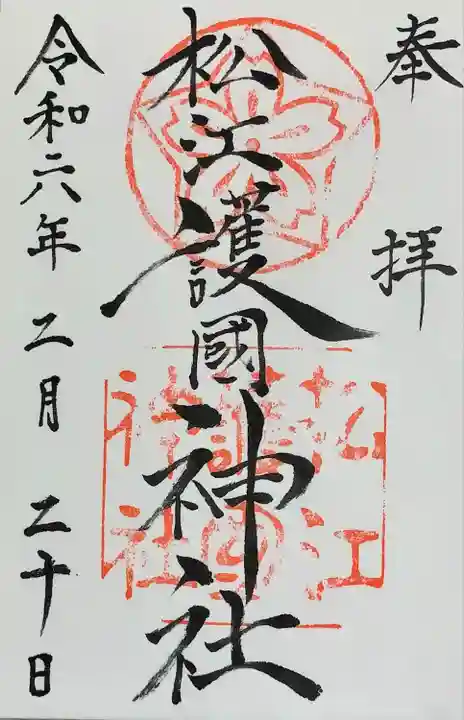 奉拝
松江護國神社
令和六年二月二十日
松江
護國
神社